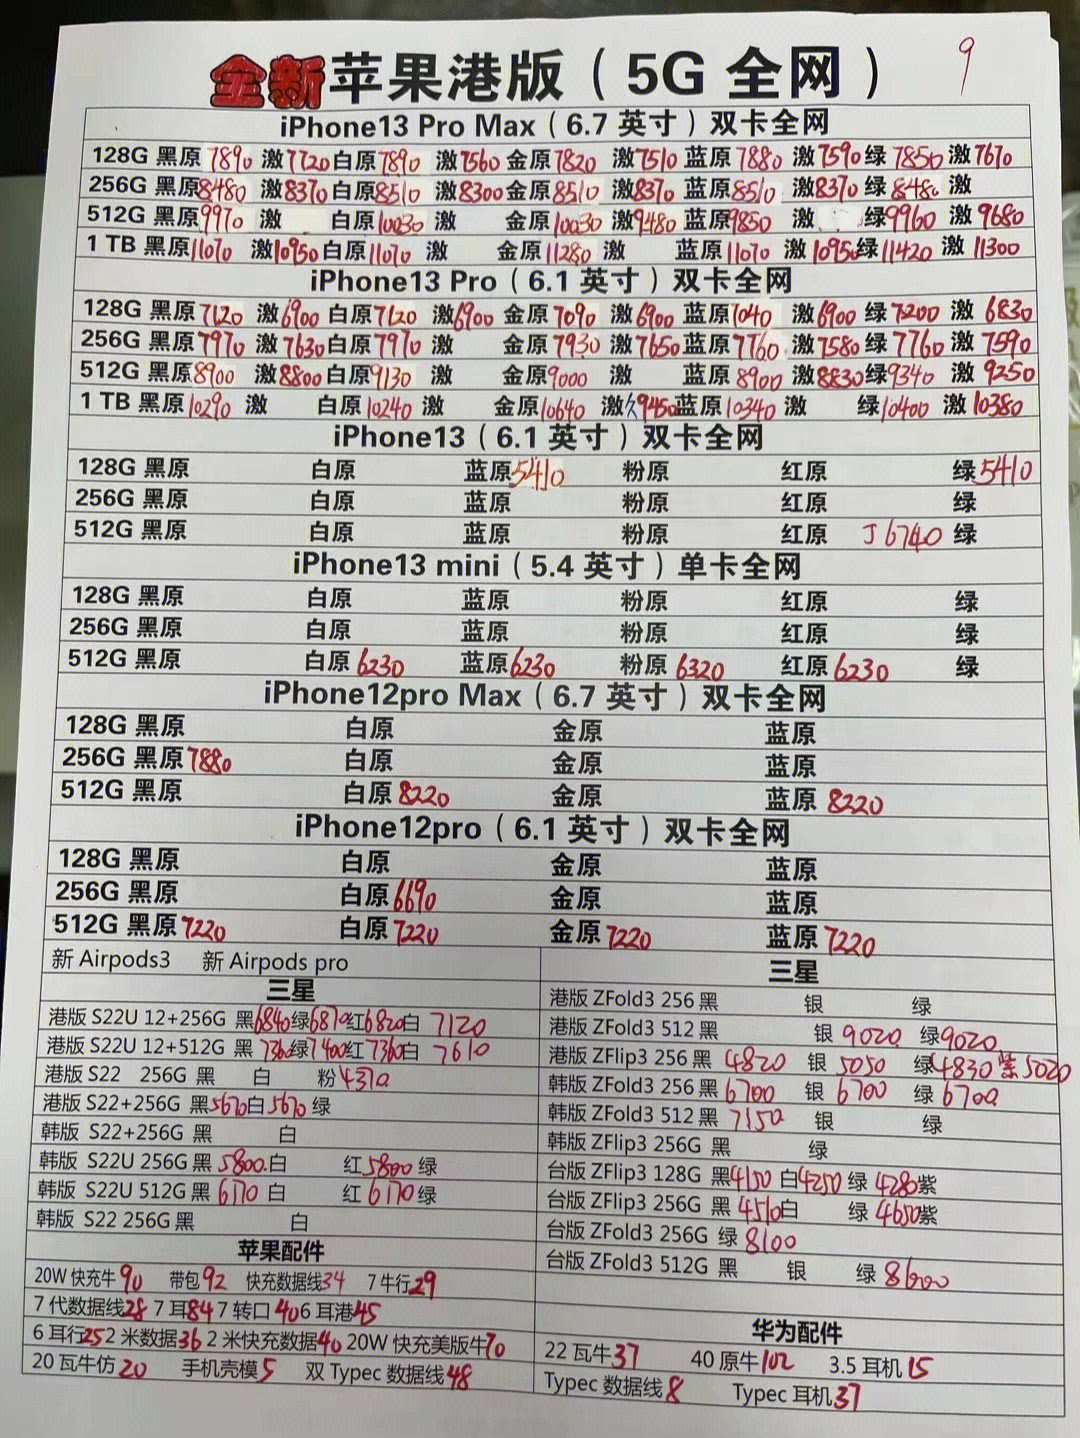 全新苹果港版（5G 全网） 9
iPhone13 Pro Max（6.7 英寸）双卡全网
128G 黑原 7890 激 7720 白原 7890 激 7560 金原 7820 激 7510 蓝原 7880 激 7590 绿 7850 激 7670
256G 黑原 8480 激 8370 白原 8510 激 8300 金原 8510 激 8370 蓝原 8510 激 8370 绿 8480 激
512G 黑原 9970 激 白原 10030 激 金原 10030 激 9480 蓝原 9850 激 绿 9960 激 9680
1 TB 黑原 11070 激 10950 白原 11070 激 金原 11280 激 蓝原 11070 激 10950 绿 11420 激 11300
iPhone13 Pro（6.1 英寸）双卡全网
128G 黑原 7120 激 6900 白原 7120 激 6900 金原 7090 激 6900 蓝原 7040 激 6900 绿 7200 激 6830
256G 黑原 7970 激 7630 白原 7970 激 金原 7930 激 7650 蓝原 7760 激 7580 绿 7760 激 7590
512G 黑原 8900 激 8800 白原 9130 激 金原 9000 激 蓝原 8900 激 8830 绿 9340 激 9250
1 TB 黑原 10290 激 白原 10240 激 金原 10640 激 9450 蓝原 10340 激 绿 10400 激 10380
iPhone13（6.1 英寸）双卡全网
128G 黑原 白原 蓝原 5410 粉原 红原 绿 5410
256G 黑原 白原 蓝原 粉原 红原 绿
512G 黑原 白原 蓝原 粉原 红原 J6740 绿
iPhone13 mini（5.4 英寸）单卡全网
128G 黑原 白原 蓝原 粉原 红原 绿
256G 黑原 白原 蓝原 粉原 红原 绿
512G 黑原 白原 6230 蓝原 6230 粉原 6320 红原 6230 绿
iPhone12pro Max（6.7 英寸）双卡全网
128G 黑原 白原 金原 蓝原
256G 黑原 7880 白原 金原 蓝原
512G 黑原 白原 8220 金原 蓝原 8220
iPhone12pro（6.1 英寸）双卡全网
128G 黑原 白原 金原 蓝原
256G 黑原 白原 6690 金原 蓝原
512G 黑原 7220 白原 7220 金原 7220 蓝原 7220
新 Airpods3 新 Airpods pro
三星
港版 S22U 12+256G 黑 6840 绿 6870 红 6820 白 7120
港版 S22U 12+512G 黑 7360 绿 7400 红 7360 白 7610
港版 S22 256G 黑 白 粉 4370
港版 S22+256G 黑 5670 白 5670 绿
韩版 S22+256G 黑 白
韩版 S22U 256G 黑 5800 白 红 5800 绿
韩版 S22U 512G 黑 6170 白 红 6170 绿
韩版 S22 256G 黑 白
苹果配件
20W 快充牛 90 带包 92 快充数据线 34 7 牛行 29
7 代数据线 28 7 耳 84 7 转口 40 6 耳港 45
6 耳行 25 2 米数据 36 2 米快充数据 40 20W 快充美版牛 70
20 瓦牛仿 20 手机壳模 5 双 Typec 数据线 48
三星
港版 ZFold3 256 黑 银 绿
港版 ZFold3 512 黑 银 9020 绿 9020
港版 ZFlip3 256 黑 4820 银 5050 绿 4830 紫 5020
韩版 ZFold3 256 黑 6700 银 6700 绿 6700
韩版 ZFold3 512 黑 7150 银 绿
韩版 ZFlip3 256G 黑 绿
台版 ZFlip3 128G 黑 4150 白 4250 绿 4280 紫
台版 ZFlip3 256G 黑 4510 白 绿 4650 紫
台版 ZFold3 256G 绿 8100
台版 ZFold3 512G 黑 银 绿 8600
华为配件
22 瓦牛 37 40 原牛 102 3.5 耳机 15
Typec 数据线 8 Typec 耳机 37